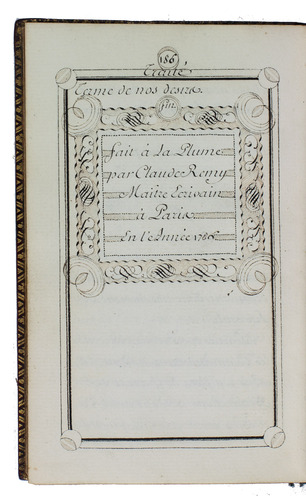 186
Traité
Terme de nos desirs.
fin.
fait à la Plume
par Claude Remy
Maitre Ecrivain
à Paris
En l'Année 1786